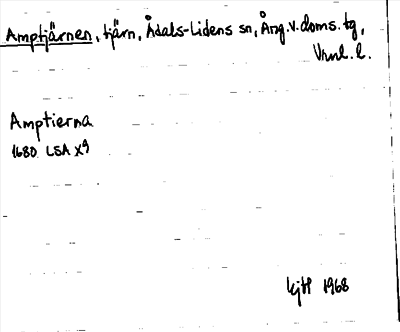 Amptjärnen, tjärn, Ådals-Lidens sn, Ång.v.doms.tg,
Vrnl. l.
Amptierna
1680 LSA X9
kjtl 1968